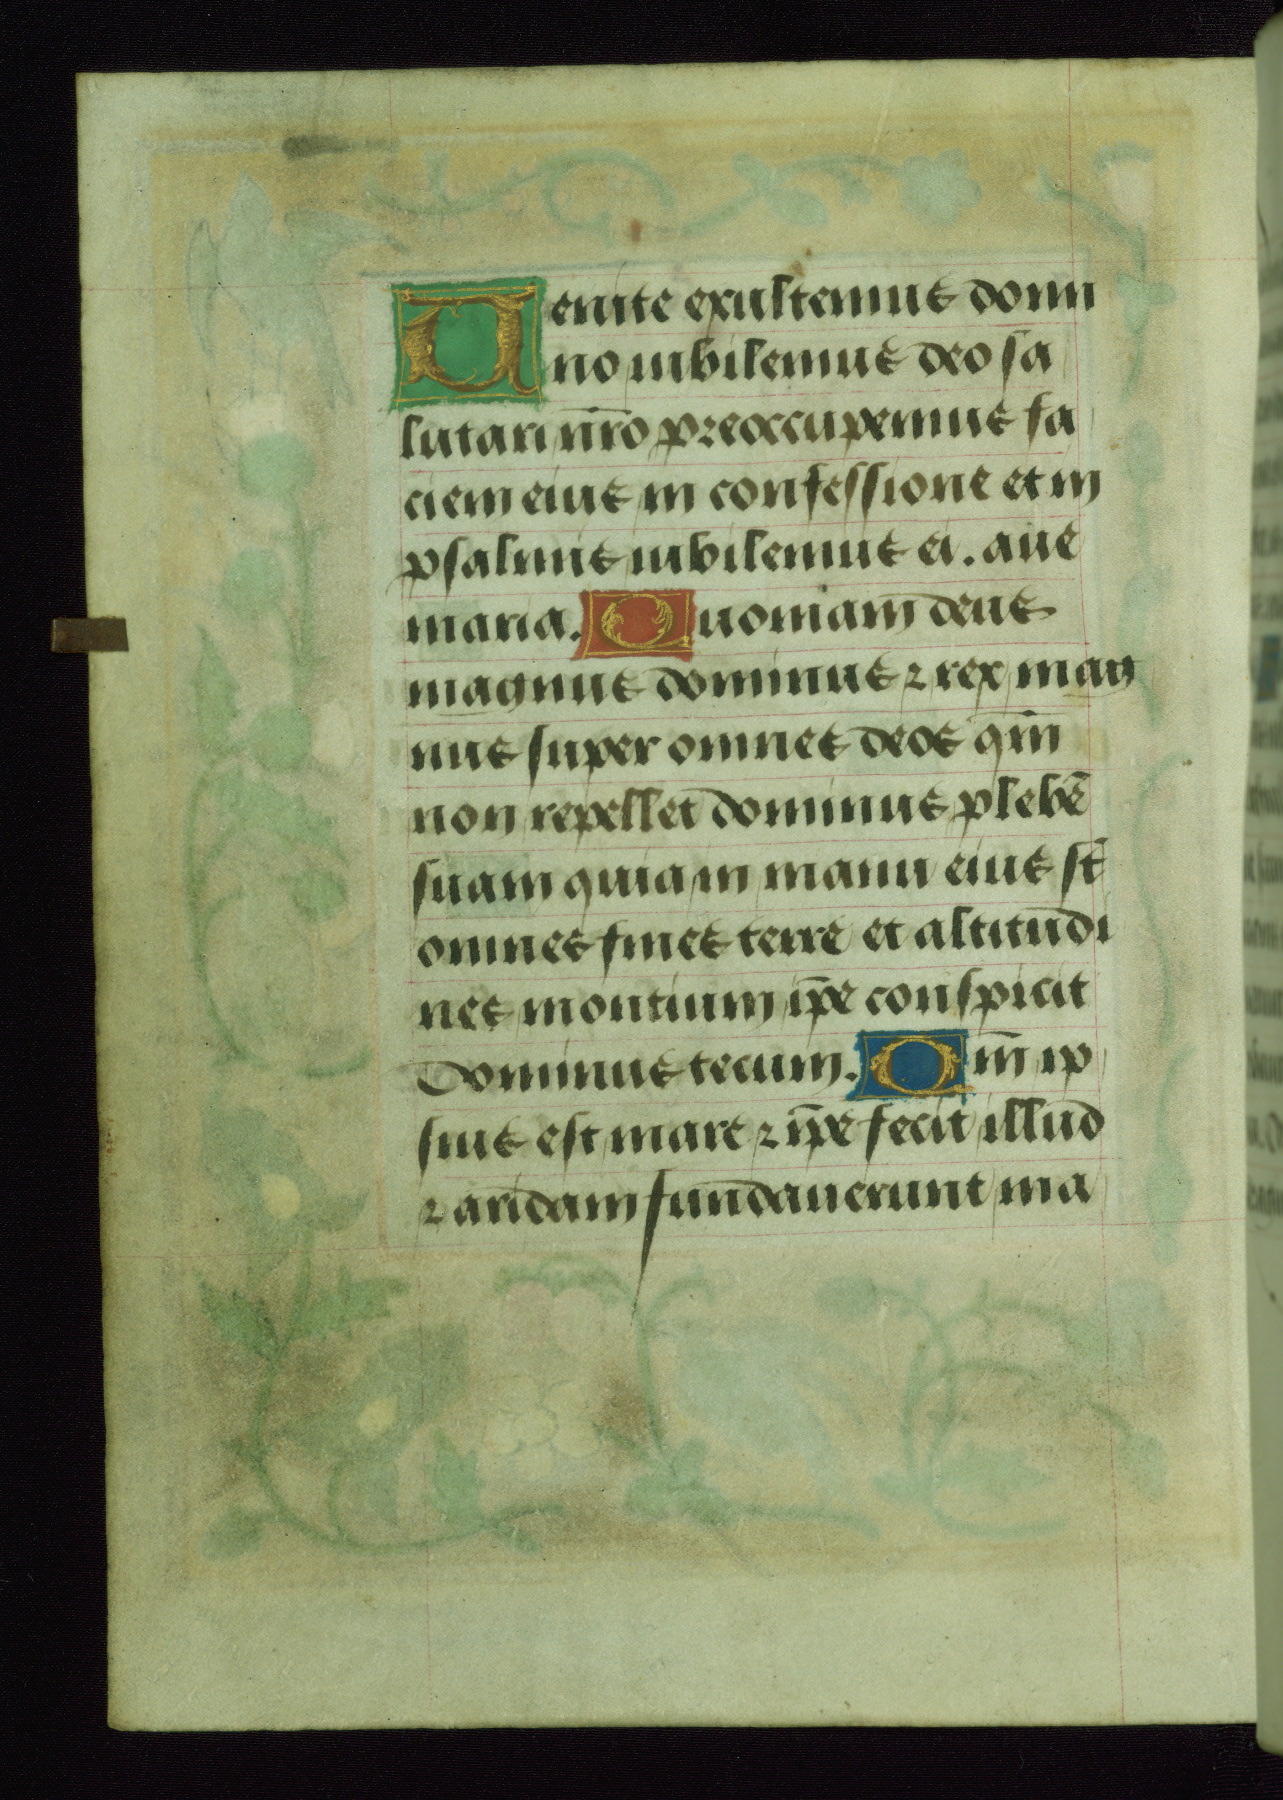 Uenite exultemus domi
no iubilemus deo sa
lutari nr̄o preoccupemus fa
ciem eius in confessione et in
psalmis iubilemus ei. aue
maria. Quoniam deus
magnus dominus ⁊ rex mag
nus super omnes deos qm̄
non repellet dominus plebē
suam quia in manu eius st̄
omnes fines terre et altitudi
nes montium ip̄e conspicit
Dominus tecum. Qm̄ ip
sius est mare ⁊ ip̄e fecit illud
⁊ aridam fundauerunt ma